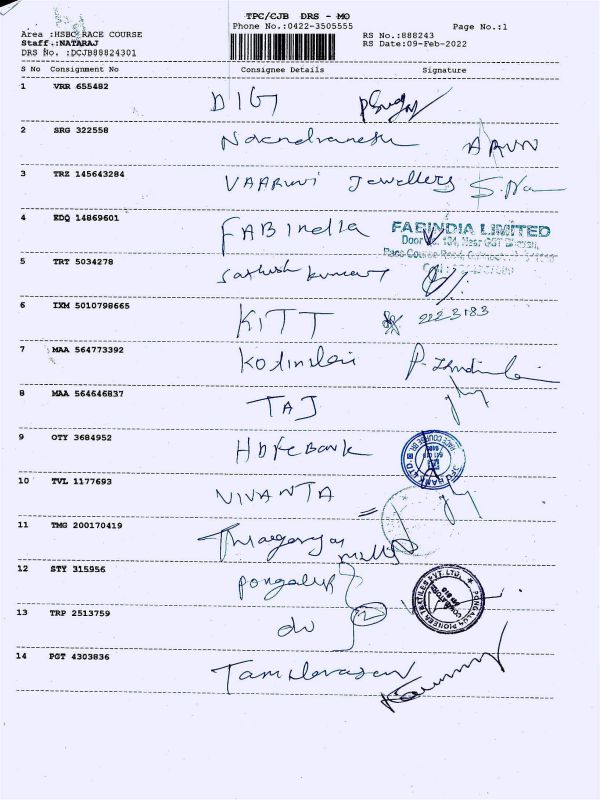 TPC/CJB DRS - MO
Phone No.:0422-3505555
Page No.:1
Area :HSBC RACE COURSE
RS No.:888243
Staff.:NATARAJ
RS Date:09-Feb-2022
DRS No. :DCJB88824301
S No Consignment No Consignee Details Signature
1 VRR 655482 DIG
2 SRG 322558 ARUN
3 TRZ 145643284 VAARUNI Jewellers
4 EDQ 14869601 FABIndia FABINDIA LIMITED
Door No. 104, Near GST Bhavan,
Race Course Road,
5 TRT 5034278 Sathish kumar
6 IXM 5010798665 KITT 2223183
7 MAA 564773392
8 MAA 564646837 TAJ
9 OTY 3684952 HDFC Bank
10 TVL 1177693 VIVANTA
11 TMG 200170419 mills
12 STY 315956 pongalur
13 TRP 2513759 do 2
14 PGT 4303836 Tamilarasan